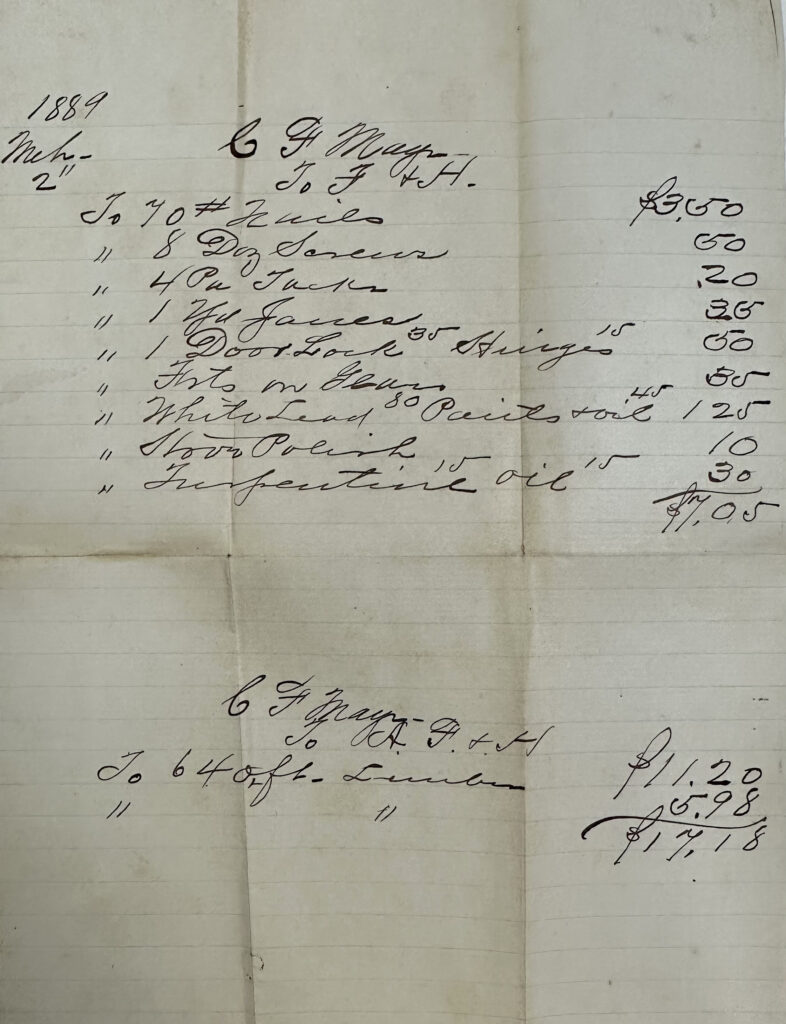 1889
Mch-
2"
C F Mayr
To F + H.
To 70 # Nails $3.50
" 8 Doz Screws 50
" 4 Pa Tacks .20
" 1 Yd Janes 35
" 1 Door Lock 35 Hinges 15 50
" on 35
" White Lead 80 Paints + oil 45 1 25
" Stove Polish 10
" Turpentine 15 oil 15 30
$7.05
C F Mayr
To A. F. + H
To 640 ft. Lumber $11.20
" " 5.98
$17.18